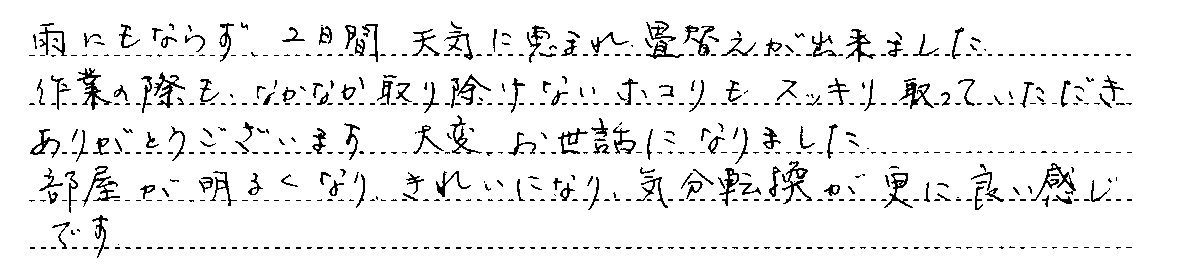 雨にもならず、2日間 天気に恵まれ、畳替えが出来ました
作業の際も、なかなか取り除けないホコリも スッキリ 取っていただき
ありがとうございます 大変、お世話になりました
部屋が明るくなり、きれいになり、気分転換が更に良い感じ
です